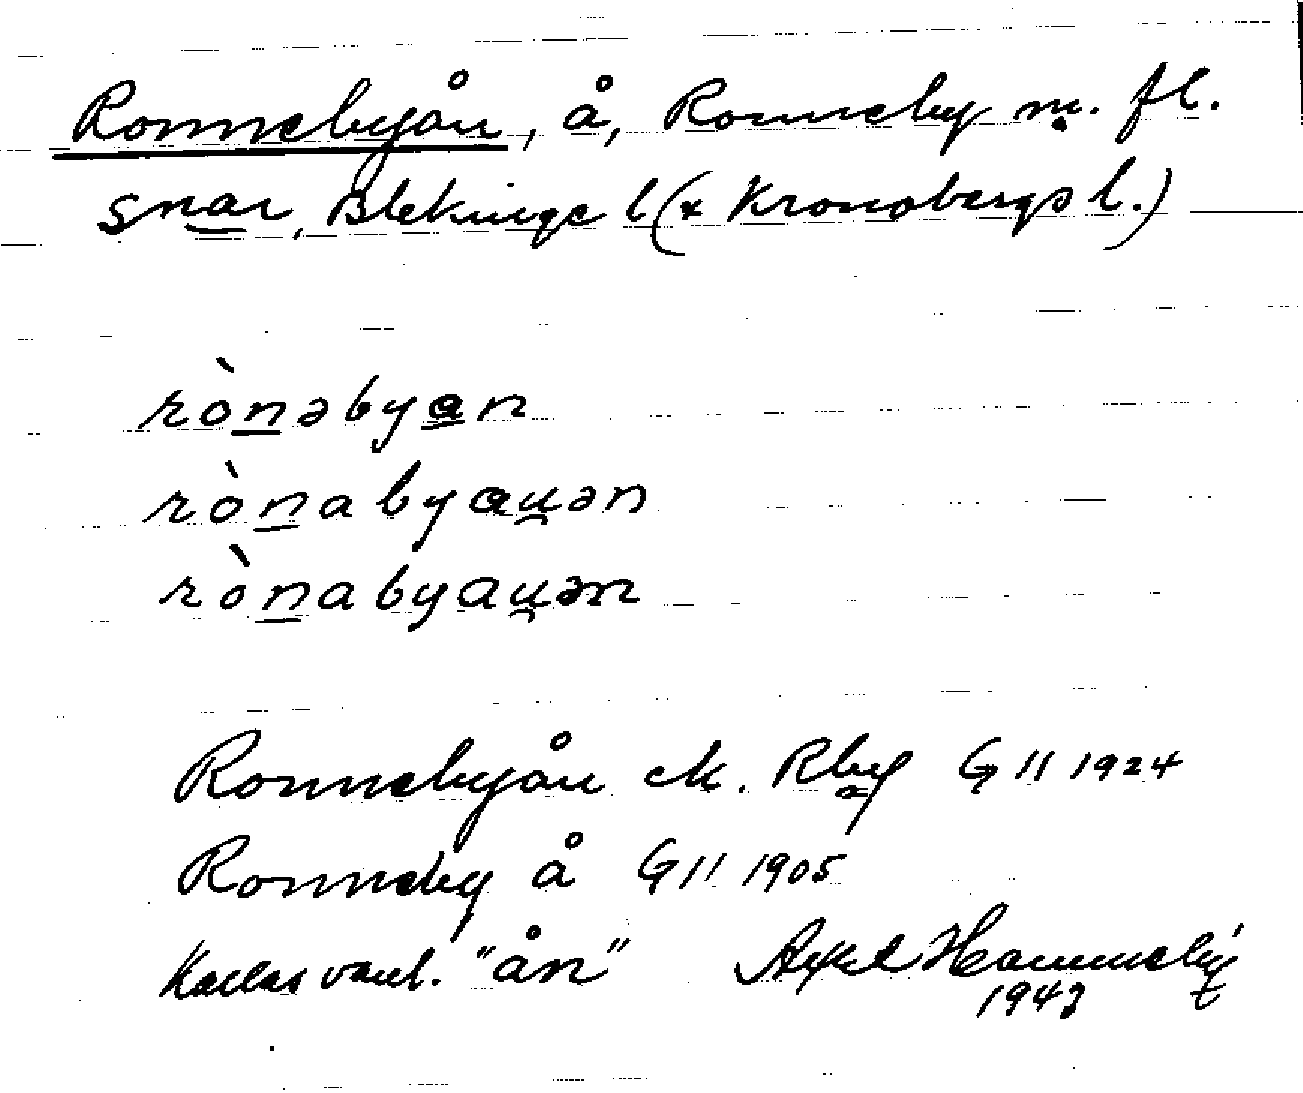 Ronnebyån, å, Ronneby m. fl.
snar, Blekinge l (+ Kronobergs l.)
rònəbyan
rònabyau̯ən
rònabyau̯ən
Ronnebyån ek. Rby G II 1924
Ronneby å G II 1905
Kallas vanl. "ån" Axel Hammeby
1943